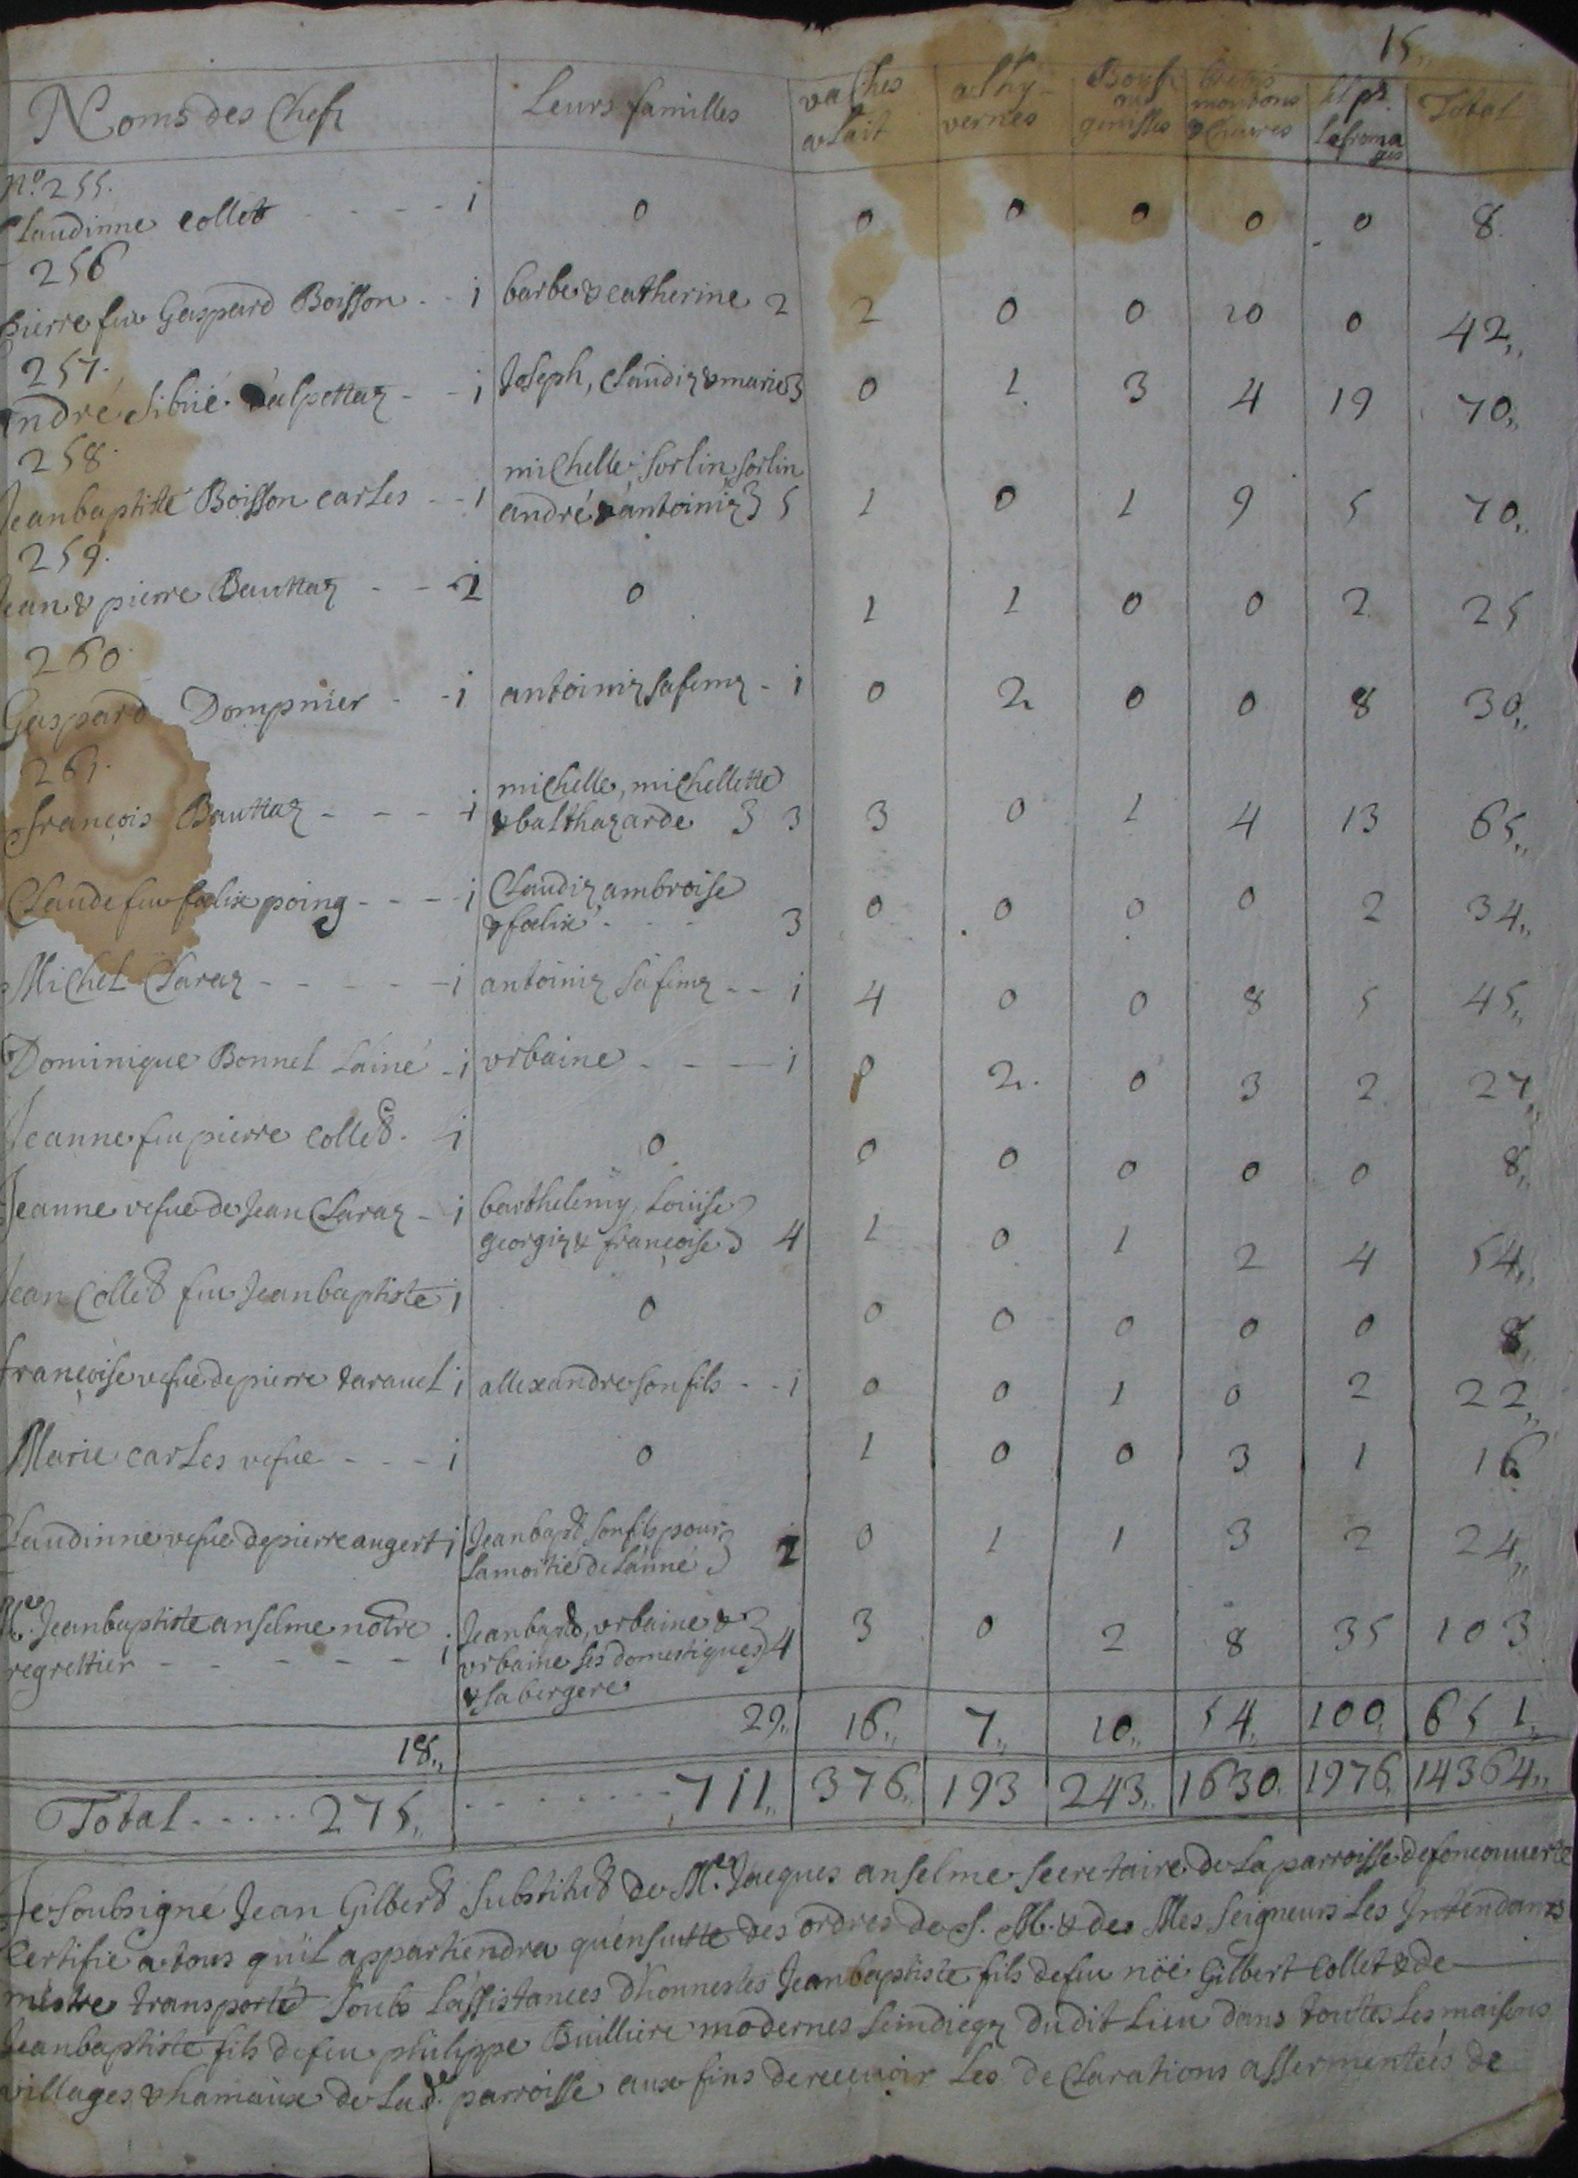 15,,
Noms des Chefz | Leurs familles | vaches a lait | a lhy-vernes | Boeufs ou genisses | brebis moutons & Chevres | sel pr le fromages | Total
No. 255.
Claudinne Collet - - - - 1 | 0 | 0 | 0 | 0 | 0 | 0 | 8.
256
pierre feu Gaspard Boisson - - 1 | barbe & catherine 2 | 2 | 0 | 0 | 20 | 0 | 42,,
257.
André Sibüé dalpettaz - - 1 | Joseph, Claudiz & marie 3 | 0 | 1 | 3 | 4 | 19 | 70,,
258.
Jeanbaptiste Boisson carles - - 1 | michelle, sorlin, sorlin
andré & antoiniz } 5 | 1 | 0 | 1 | 9 | 5 | 70,,
259.
Jean & pierre Bauttaz - - 2 | 0 | 1 | 1 | 0 | 0 | 2 | 25
260.
Gaspard Dompnier - - 1 | antoiniz sa femz - 1 | 0 | 2 | 0 | 0 | 8 | 30,,
261.
françois Bauttaz - - - - 1 | michelle, michellette
& balthazarde } 3 | 3 | 0 | 1 | 4 | 13 | 65,,
Claude feu foelix poing - - - - 1 | Claudiz ambroise
& foelix - - - 3 | 0 | 0 | 0 | 0 | 2 | 34,,
Michel Claraz - - - - - 1 | antoiniz sa femz - - 1 | 4 | 0 | 0 | 8 | 5 | 45,,
Dominique Bonnel Lainé - 1 | vrbaine - - - 1 | 0 | 2. | 0 | 3 | 2 | 27,,
Jeanne feu pierre Collet. 1 | 0 | 0 | 0 | 0 | 0 | 0 | 8,,
Jeanne vefue de Jean Claraz - 1 | barthelemy, Loüise
georgiz & françoise } 4 | 1 | 0 | 1 | 2 | 4 | 54,,
Jean Collet feu Jeanbaptiste 1 | 0 | 0 | 0 | 0 | 0 | 0 | 8,,
françoise vefue de pierre tarauel 1 | allexandre son fils - - 1 | 0 | 0 | 1 | 0 | 2 | 22,,
Marie carles vefue - - - 1 | 0 | 1 | 0 | 0 | 3 | 1 | 16
Claudinne vefue de pierre augert 1 | Jeanbapt son fils pour
la moitié de l'anné } 1 | 0 | 1 | 1 | 3 | 2 | 24,,
Me. Jeanbaptiste anselme notre
regrettier - - - - - 1 | Jeanbapt, vrbaine &
vrbaine ses domestiques } 4
& sa bergere | 3 | 0 | 2 | 8 | 35 | 103
18,, | 29,, | 16,, | 7,, | 10,, | 54,, | 100,, | 651,,
Total . . . . . 275,, | . . . . . . . . 711,, | 376,, | 193 | 243,, | 1630. | 1976,, | 14364,,
Je soubsigné Jean Gilbert substitut de Me. Jacques anselme secretaire de La parroisse de foncouuerte
Certifie a tous qu'il appartiendra qu'ensuitte des ordres de S. M. & des Mes seigneurs Les Intendants
m'estre transporté soubs L'assistances d'honnestes Jeanbaptiste fils de feu nöé Gilbert Collet & de
Jeanbaptiste fils de feu philippe Builliere modernes scindiqz dudit Lieu dans toutes Les maisons
villages & hamaux de Lad. parroisse aux fins de receuoir Les declarations assermenteés de